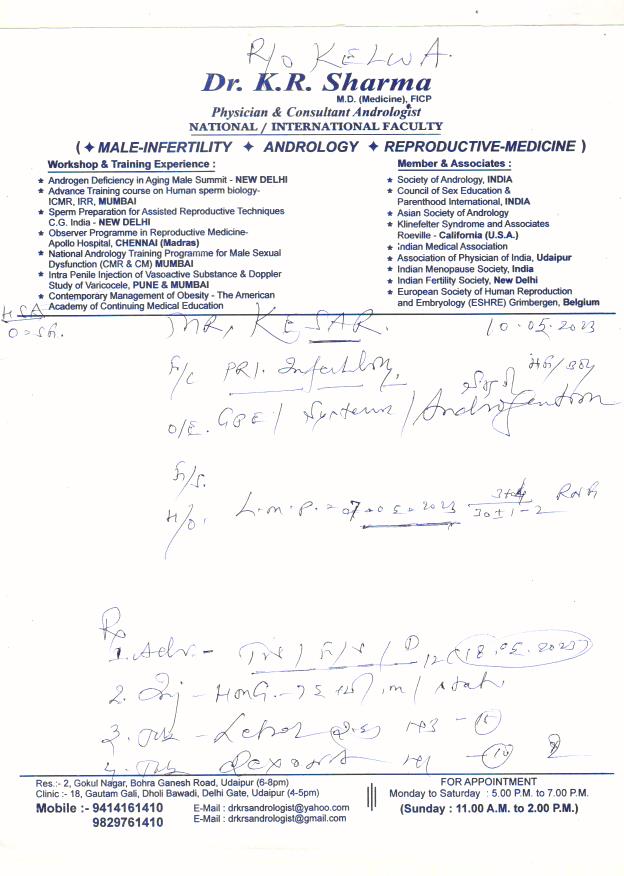 R/o KELWA.
Dr. K.R. Sharma
M.D. (Medicine), FICP
Physician & Consultant Andrologist
NATIONAL / INTERNATIONAL FACULTY
( ✦ MALE-INFERTILITY ✦ ANDROLOGY ✦ REPRODUCTIVE-MEDICINE )
Workshop & Training Experience :
★ Androgen Deficiency in Aging Male Summit - NEW DELHI
★ Advance Training course on Human sperm biology-
ICMR, IRR, MUMBAI
★ Sperm Preparation for Assisted Reproductive Techniques
C.G. India - NEW DELHI
★ Observer Programme in Reproductive Medicine-
Apollo Hospital, CHENNAI (Madras)
★ National Andrology Training Programme for Male Sexual
Dysfunction (CMR & CM) MUMBAI
★ Intra Penile Injection of Vasoactive Substance & Doppler
Study of Varicocele, PUNE & MUMBAI
★ Contemporary Management of Obesity - The American
Academy of Continuing Medical Education
Member & Associates :
★ Society of Andrology, INDIA
★ Council of Sex Education &
Parenthood International, INDIA
★ Asian Society of Andrology
★ Klinefelter Syndrome and Associates
Roeville - California (U.S.A.)
★ Indian Medical Association
★ Association of Physician of India, Udaipur
★ Indian Menopause Society, India
★ Indian Fertility Society, New Delhi
★ European Society of Human Reproduction
and Embryology (ESHRE) Grimbergen, Belgium
HSA
MR. KESAR. 10.05.2023
PRI. Infertility,
O/E. GPE/
H/O. L.M.P. = 07-05-2023
Rx
1. Adv. - 12 (18.05.2023)
2. Inj - im / stat
3.
4.
Res.:- 2, Gokul Nagar, Bohra Ganesh Road, Udaipur (6-8pm)
Clinic :- 18, Gautam Gali, Dholi Bawadi, Delhi Gate, Udaipur (4-5pm)
Mobile :- 9414161410
9829761410
E-Mail : drkrsandrologist@yahoo.com
E-Mail : drkrsandrologist@gmail.com
FOR APPOINTMENT
Monday to Saturday : 5.00 P.M. to 7.00 P.M.
(Sunday : 11.00 A.M. to 2.00 P.M.)